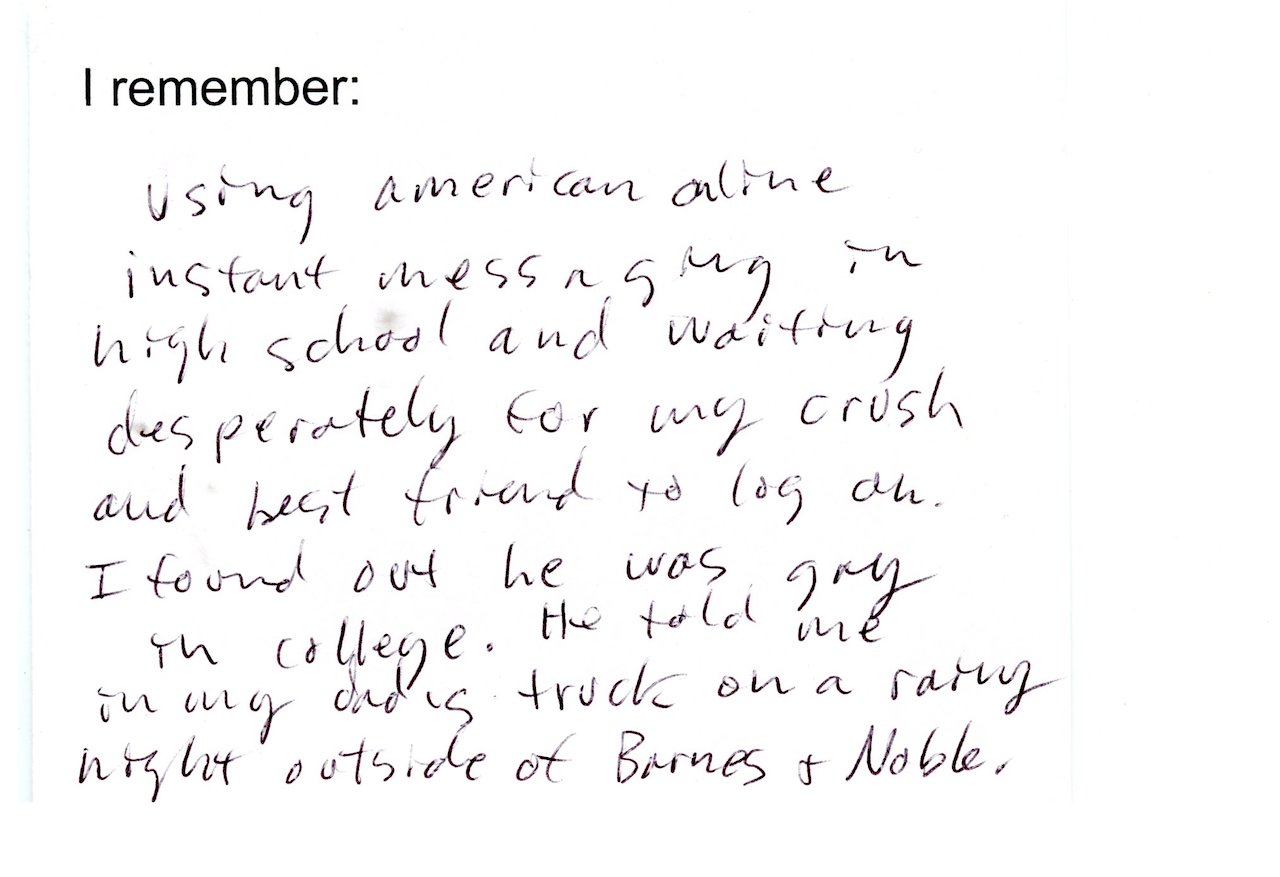 I remember:
Using american aline
instant messaging in
high school and waiting
desperately for my crush
and best friend to log on.
I found out he was gay
in college. He told me
in my dad's truck on a rainy
night outside of Barnes + Noble.